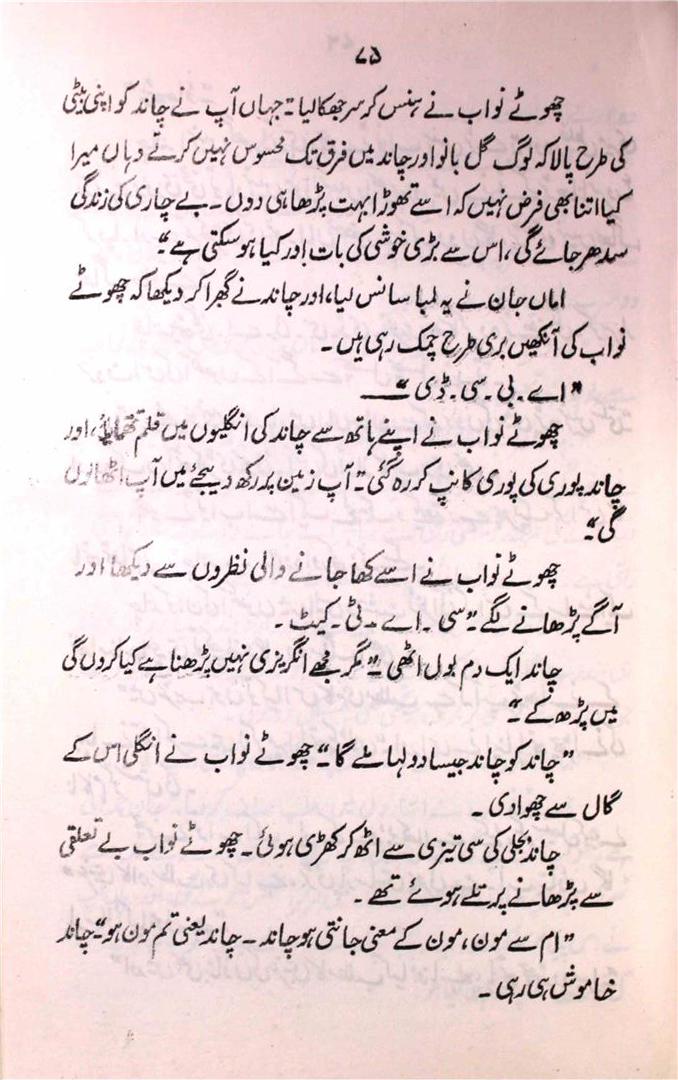 ۷۵
چھوٹے نواب نے ہنس کر سر جھکا لیا "جہاں آپ نے چاند کو اپنی بیٹی
کی طرح پالا کہ لوگ گل بانو اور چاند میں فرق تک محسوس نہیں کرتے وہاں میرا
کیا اتنا بھی فرض نہیں کہ اسے تھوڑا بہت پڑھا ہی دوں۔ بے چاری کی زندگی
سدھر جائے گی، اس سے بڑی خوشی کی بات اور کیا ہو سکتی ہے"۔
اماں جان نے یہ لمبا سانس لیا، اور چاند نے گھبرا کر دیکھا کہ چھوٹے
نواب کی آنکھیں بری طرح چمک رہی ہیں۔
"اے۔ بی۔ سی۔ ڈی"۔
چھوٹے نواب نے اپنے ہاتھ سے چاند کی انگلیوں میں قلم تھمایا، اور
چاند پوری کی پوری کانپ کر رہ گئی "آپ زمین پر رکھ دیجئے میں آپ اٹھالوں
گی"۔
چھوٹے نواب نے اسے کھا جانے والی نظروں سے دیکھا اور
آگے پڑھانے لگے۔ "سی۔ اے۔ ٹی۔ کیٹ۔
چاند ایک دم بول اٹھی "مگر مجھے انگریزی نہیں پڑھنا ہے کیا کروں گی
میں پڑھ کے"۔
"چاند کو چاند جیسا دولہا ملے گا"۔ چھوٹے نواب نے انگلی اس کے
گال سے چھوا دی۔
چاند بجلی کی سی تیزی سے اٹھ کر کھڑی ہوئی۔ چھوٹے نواب بے تعلقی
سے پڑھانے پر تلے ہوئے تھے۔
"ام سے مون، مون کے معنی جانتی ہو چاند۔ چاند یعنی تم مون ہو" چاند
خاموش ہی رہی۔